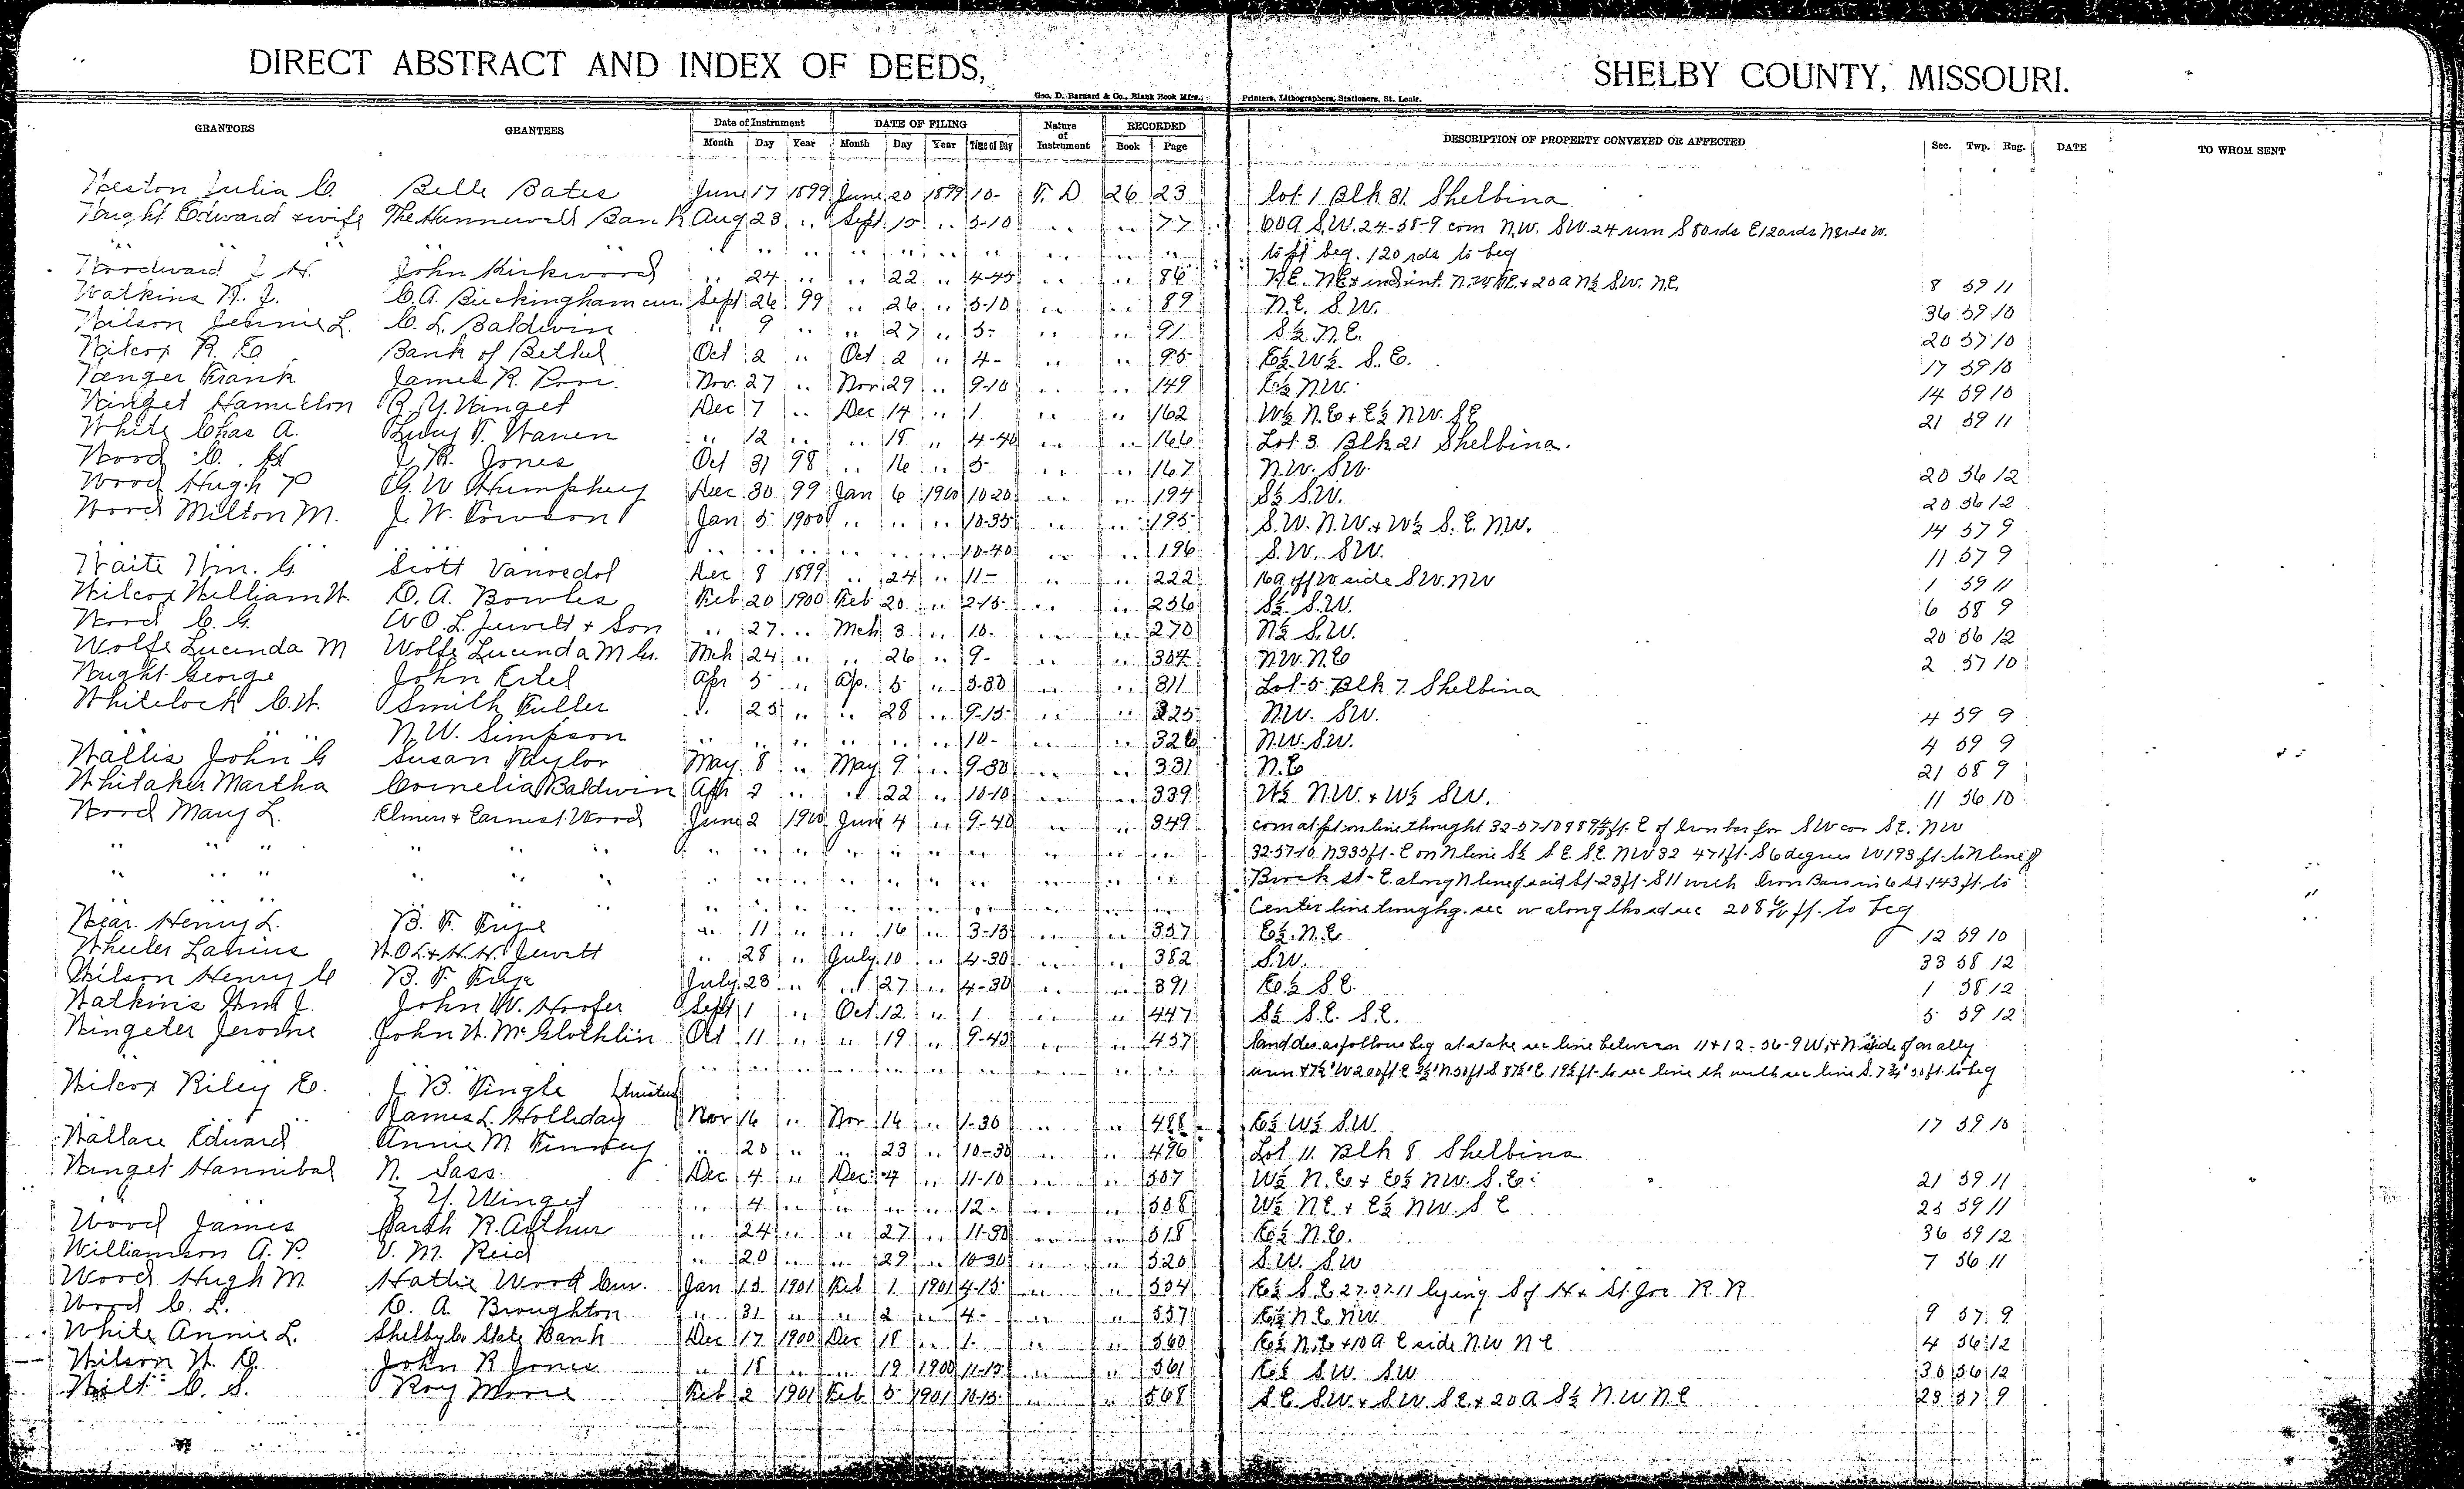 DIRECT ABSTRACT AND INDEX OF DEEDS, SHELBY COUNTY, MISSOURI.
Geo. D. Barnard & Co., Blank Book Mfrs., Printers, Lithographers, Stationers, St. Louis.
GRANTORS GRANTEES Date of Instrument DATE OF FILING Nature of Instrument RECORDED DESCRIPTION OF PROPERTY CONVEYED OR AFFECTED Sec. Twp. Rng. DATE TO WHOM SENT
Month Day Year Month Day Year Time of Day Book Page
Weston Julia C. Belle Bates June 17 1899 June 20 1899 10- T. D 26 23 Lot 1 Blk 31 Shelbina
Wright Edward & wife The Hunnewell Bank Aug 23 .. Sept 15 .. 3-10 .. .. 77 60a S.W. 24-58-9 com N.W. SW. 24 run S 80rds E 120rds N rds W.
.. .. .. .. .. .. .. .. .. .. .. to pt beg. 120 rds to beg
Woodward J H. John Kirkwood .. 24 .. .. 22 .. 4-45 .. .. 86 N.E. NE & und int. N.W NE. + 20a N½ S.W. N.E. 8 59 11
Watkins W. J. C. A. Buckingham cur. Sept 26 99 .. 26 .. 3-10 .. .. 89 N.E. S.W. 36 59 10
Wilson Jennie L. C. L. Baldwin .. 9 .. .. 27 .. 3- .. .. 91 S½ N.E. 20 57 10
Wilcox R. E. Bank of Bethel Oct 2 .. Oct 2 .. 4- .. .. 95 E½ W½ S.E. 17 59 10
Wenger Frank James R. Nov. 27 .. Nov 29 .. 9-10 .. .. 149 E½ NW. 14 59 10
Winget Hamilton R. Y. Winget Dec 7 .. Dec 14 .. 1 .. .. 162 W½ N.E + E½ NW. SE 21 59 11
White Chas A. Lucy T. Warren .. 12 .. .. 15 .. 4-40 .. .. 166 Lot 3 Blk 21 Shelbina.
Wood C. H J. R. Jones Oct 31 98 .. 16 .. 3- .. .. 167 N.W. S.W 20 56 12
Wood Hugh P G. W Humphrey Dec 30 99 Jan 6 1900 10 20 .. .. 194 S½ S.W. 20 56 12
Wood Milton M. J. W. Towson Jan 5 1900 .. .. .. 10-35 .. .. 195 S.W. N.W. + W½ S.E. NW. 14 57 9
.. .. .. .. .. .. .. .. .. 10-40 .. .. 196 S.W. SW. 11 57 9
Waite Wm. G. Scott Vanosdol Dec 8 1899 .. 24 .. 11- .. .. 222 16a off W side SW. NW 1 59 11
Wilcox William W. O. A. Bowles Feb 20 1900 Feb 20 .. 2-15 .. .. 256 S½ S.W. 6 58 9
Wood C. G. W O. L. Jewett + Son .. 27 .. Mch 3 .. 10. .. .. 270 N½ S.W. 20 56 12
Wolfe Lucinda M Wolfe Lucinda M Gr. Mch 24 .. .. 26 .. 9- .. .. 304 N.W. N.E 2 57 10
Wright George John Ertel Apr 5 .. Ap. 5 .. 3-30 .. .. 311 Lot 5 Blk 7 Shelbina
Whitelock C. W. Smith Fuller .. 25 .. .. 28 .. 9-15 .. .. 325 N.W. SW. 4 59 9
.. .. N. W. Simpson .. .. .. .. .. .. 10- .. .. 326 N.W. S.W. 4 59 9
Wallis John G Susan Taylor May 8 .. May 9 .. 9-30 .. .. 331 N.E 21 58 9
Whitaker Martha Cornelia Baldwin Apr 2 .. .. 22 .. 10-10 .. .. 339 W½ N.W. + W½ S.W. 11 56 10
Wood Mary L. Elmer + Earnest Wood June 2 1900 June 4 .. 9-40 .. .. 349 com at pt on line thought 32-57-10 ft. E of Iron bar for S W cor S.E. NW
.. .. .. .. .. .. .. .. .. .. .. .. .. .. .. 32-57-10 N 335 ft- E on N line S½ S.E. S.E. NW 32 471 ft- S 6 degrees W 193 ft- to N line of
.. .. .. .. .. .. .. .. .. .. .. .. .. .. .. Brick st- E. along N line of said St-23 ft- S 11 with Iron Bars in St 143 ft. to
.. .. .. .. .. .. .. .. .. .. .. .. .. .. .. Center line sec W along sec 208 ft. to beg
Wear Henry L. B. F. Frye .. 11 .. .. 16 .. 3-15 .. .. 357 E½ N.E 12 59 10
Wheeler Lanius W. O L + H. W. Jewett .. 28 .. July 10 .. 4-30 .. .. 382 S.W. 33 58 12
Wilson Henry C B. F. Frye July 23 .. .. 27 .. 4-30 .. .. 391 E½ S.E. 1 58 12
Watkins Wm J. John W. Hoofer Sept 1 .. Oct 12 .. 1 .. .. 447 S½ S.E. S.E. 5 59 12
Wingeter Jerome John W. McGlothlin Oct 11 .. .. 19 .. 9-45 .. .. 457 land des as follows beg at stake sec line between 11 + 12 - 56-9 W. + N side of an ally
.. .. .. .. .. .. .. .. .. run W 200 ft E N 50 ft S 87½° E 19½ ft to sec line th with sec line S. 50 ft. to beg
Wilcox Riley E. J. B. Pingle (trustee)
.. .. James L. Holliday Nov 16 .. Nov 16 .. 1-30 .. .. 488 E½ W½ S.W. 17 59 10
Wallace Edward Annie M .. 20 .. .. 23 .. 10-30 .. .. 496 Lot 11 Blk 8 Shelbina
Winget Hannibal N. Sass. Dec 4 .. Dec 4 .. 11-10 .. .. 507 W½ N.E + E½ NW. S.E. 21 59 11
.. .. Z Y. Winget .. 4 .. .. .. .. 12- .. .. 508 W½ NE + E½ NW. S E 23 59 11
Wood James Sarah R. Arthur .. 24 .. .. 27 .. 11-30 .. .. 518 E½ N.E. 36 59 12
Williamson A. P. V. M. Reid .. 20 .. .. 29 .. 10 30 .. .. 520 S.W. S.W 7 56 11
Wood Hugh M Hattie Wood Cur. Jan 15 1901 Feb 1 1901 4-15 .. .. 554 E½ S.E. 27-57-11 lying S of H + St Joe R. R.
Wood C. L. O. A. Broughton .. 31 .. .. 2 .. 4- .. .. 557 E½ N.E. NW. 9 57 9
White Annie L. Shelby Co State Bank Dec 17 1900 Dec 18 .. 1- .. .. 560 E½ N.E + 10 a E side N.W N E 4 56 12
Wilson W. O. John R Jones .. 18 .. .. 19 1900 11-15 .. .. 561 E½ S.W. S.W 30 56 12
Wilt C. S. Roy Moore Feb 2 1901 Feb 5 1901 10-15 .. .. 568 S.E. S.W. + S.W S.E. + 20 A S½ N.W N.E 23 57 9